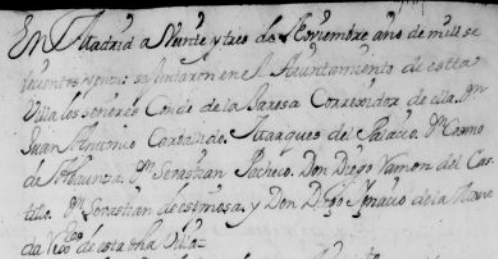 En Madrid a Veinte y tres de Noviembre año de mill se
se juntaron en el Ayuntamiento de esta
Villa los señores Conde de la Correxidor de ella. Dn
Juan Antonio Marques del Palacio. Dn
de Dn Sevastian Pacheco. Don Diego Ramon del Cas
tillo. Dn Sevastian de espinosa. y Don Diego Ygnacio de la
da de esta dha Villa=